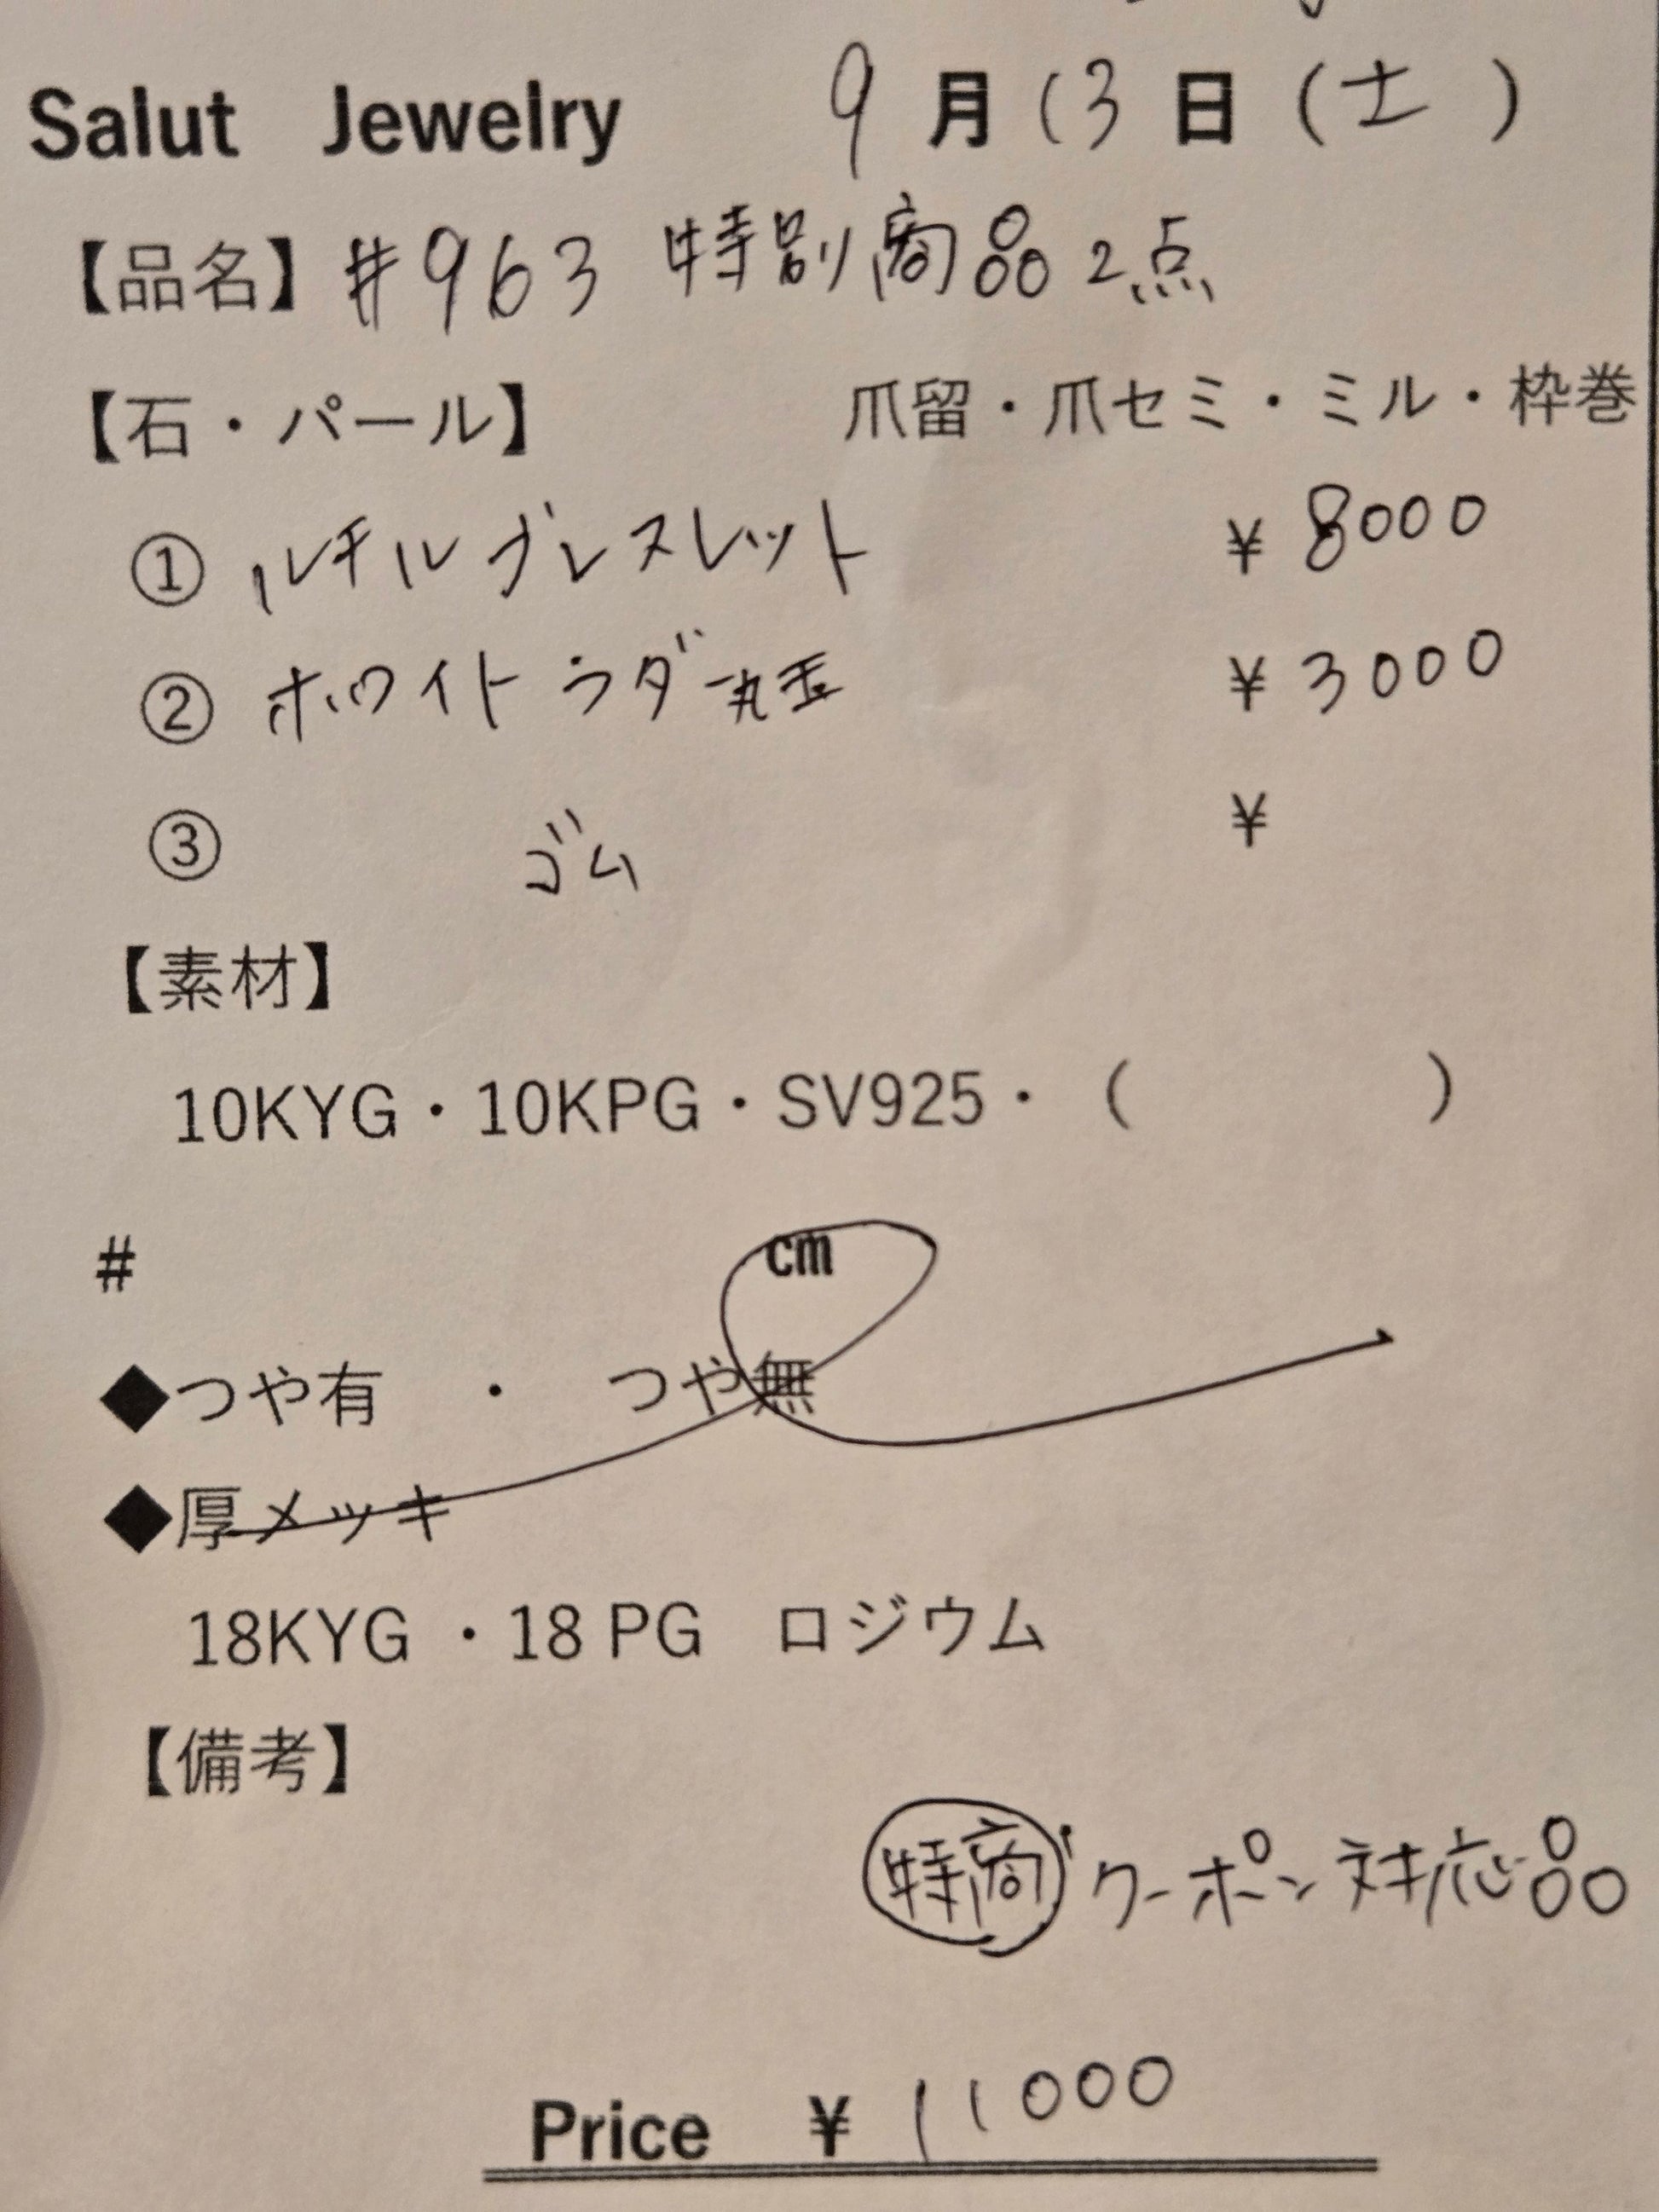 Salut Jewelry 9月13日(土)
【品名】#963 特別商品2点
【石・パール】 爪留・爪セミ・ミル・枠巻
① ルチルブレスレット ¥8000
② ホワイトラダー丸玉 ¥3000
③ ゴム ¥
【素材】
10KYG・10KPG・SV925・( )
# cm
◆つや有 ・ つや無
◆厚メッキ
18KYG ・18 PG ロジウム
【備考】
特商 クーポン対応品
Price ¥11000